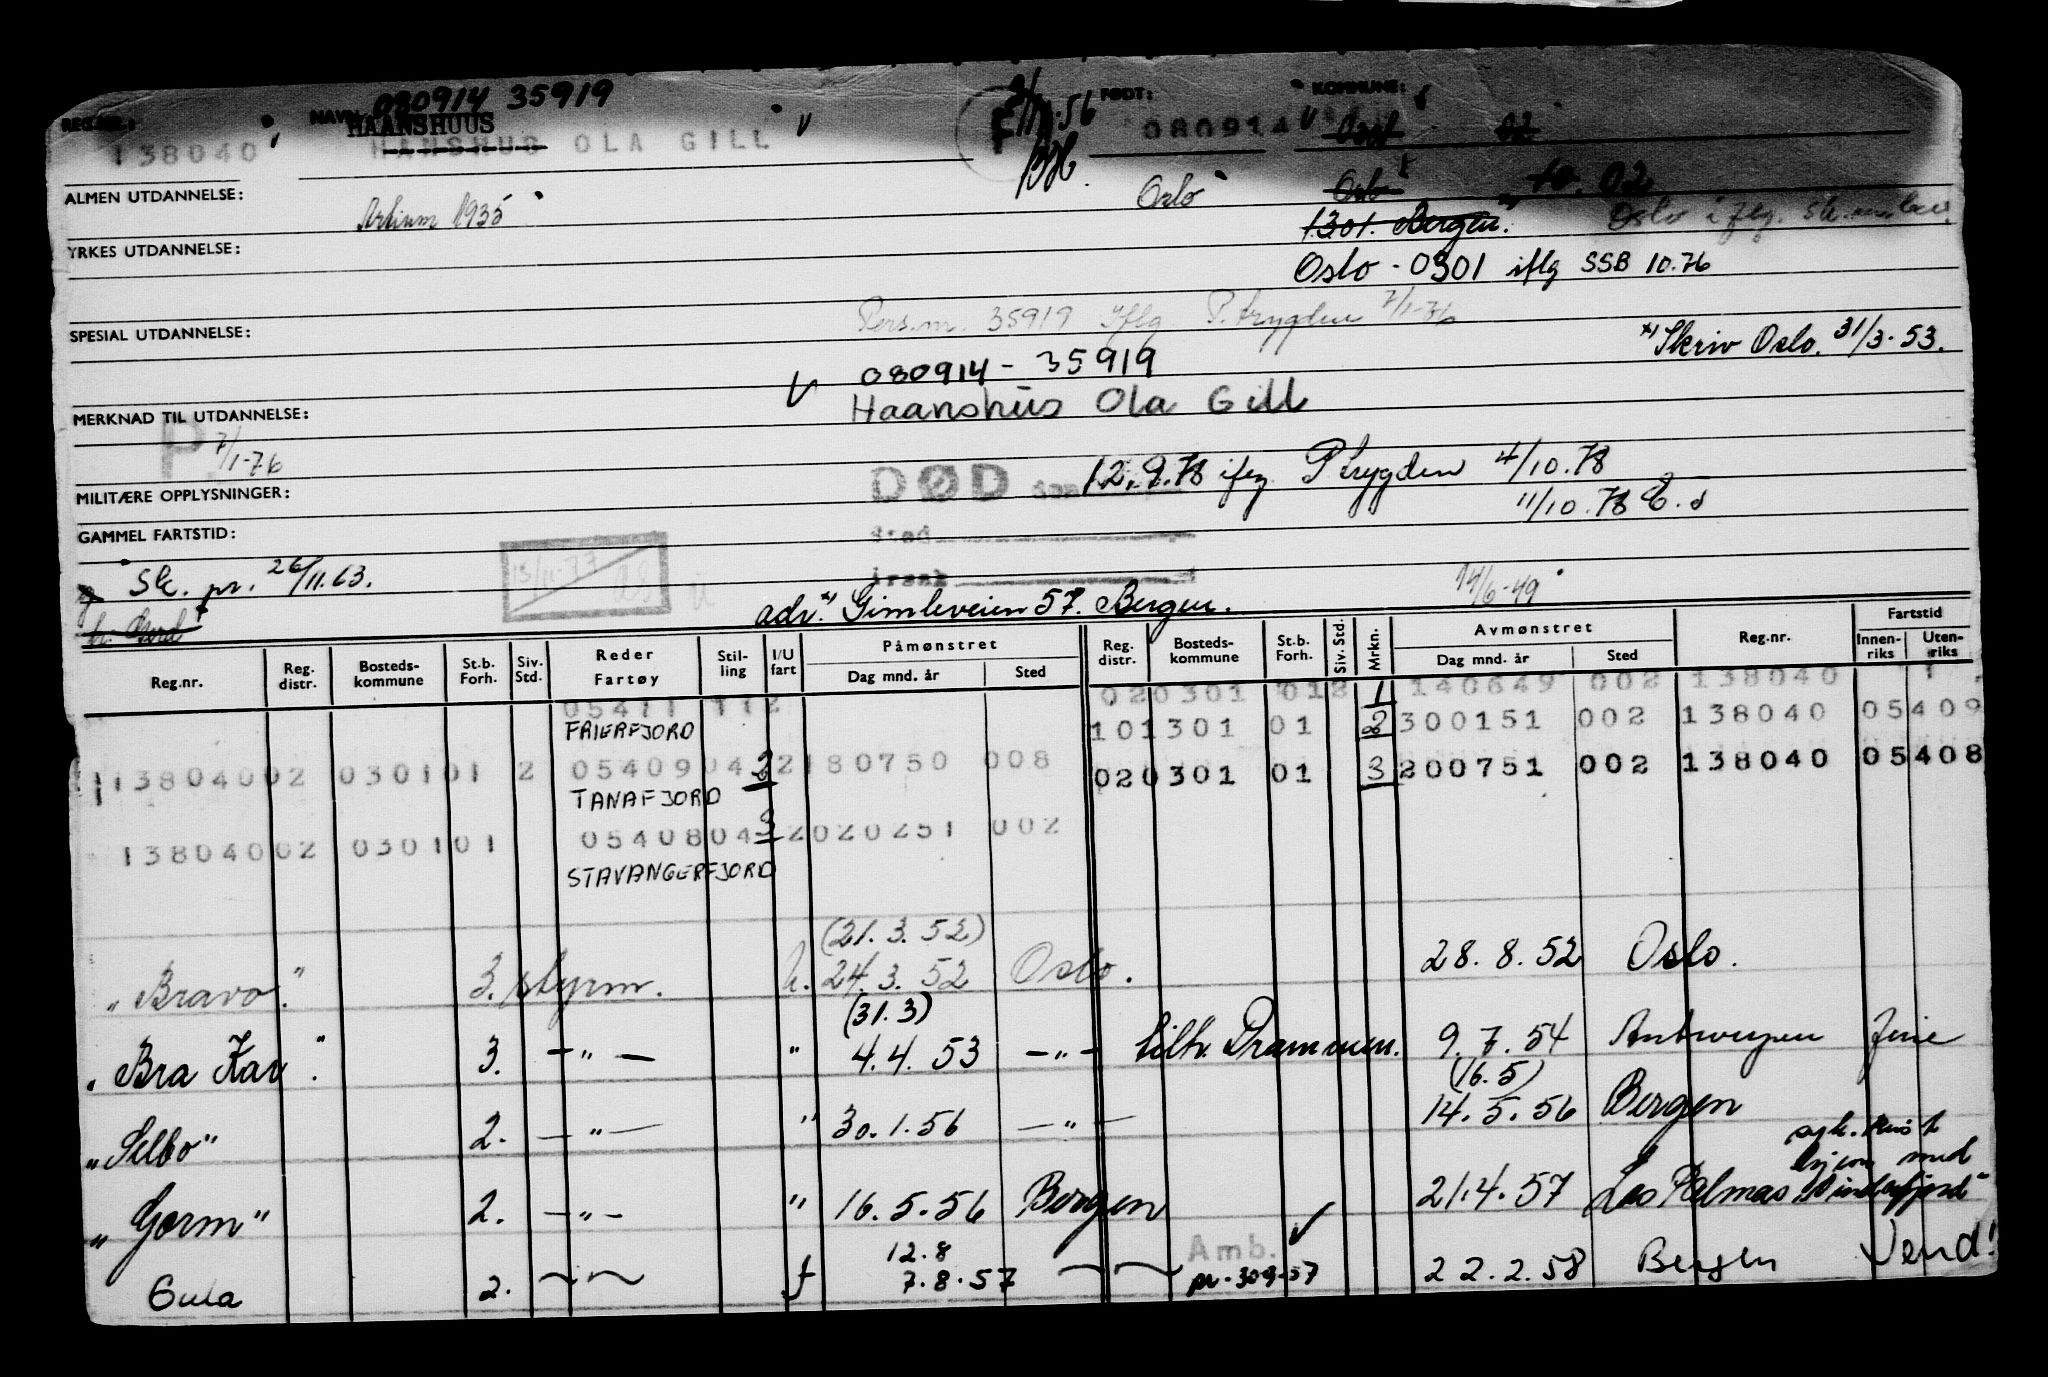 080914 35919
REG.NR.: NAVN: HAANSHUUS FØDT: KOMMUNE:
138040 HANSHUS OLA GILL 080914
ALMEN UTDANNELSE: Artium 1935 Oslo Oslo 10. 02
1301. Bergen. Oslo
YRKES UTDANNELSE:
Oslo - 0301 iflg SSB 10.76
Pers.nr. 35919 Iflg P.trygden 7/1-76
SPESIAL UTDANNELSE:
*) Skriv Oslo. 31/3-53.
080914 - 35919
MERKNAD TIL UTDANNELSE: Haanshus Ola Gill
P. 7/1-76
DØD 12.9.78 ifg P trygden 4/10.78
MILITÆRE OPPLYSNINGER: 11/10.78
GAMMEL FARTSTID:
Sted
Årsak
Sk. pr. 26/11.63. 15/11-77
14/6-49
adr. *) Gimleveien 57. Bergen.
Reg.nr. Reg. distr. Bosteds-kommune St.b. Forh. Siv. Std. Reder Fartøy Stil-ling I/U fart Påmønstret Dag mnd. år Sted Reg. distr. Bosteds-kommune St.b. Forh. Siv. Std. Mrkn. Avmønstret Dag mnd. år Sted Reg.nr. Fartstid Innen-riks Uten-riks
05411 112 020301 012 1 140649 002 138040
FRIERFJORD 101301 01 2 300151 002 138040 05409
13804002 030101 2 05409 04 2 2180750 008 020301 01 3 200751 002 138040 05408
TANAFJORD
13804002 030101 05408 04 3 2020251 002
STAVANGERFJORD
(21.3.52)
"Bravo". 3. styrm. u. 24.3.52 Oslo. 28.8.52 Oslo.
(31.3)
"Bra Kar". 3. — " — " 4.4.53 — " — Drammen. 9.7.54 Antwerpen ferie
(16.5)
"Selbo" 2. — " — " 30.1.56 — " — 14.5.56 Bergen
"Gorm" 2. — " — " 16.5.56 Bergen 21.4.57 Las Palmas syk. med
12.8 Amb.
Gula 2. — " — f 7.8.57 — " — pr. 30.9.57 22.2.58 Bergen Vend!